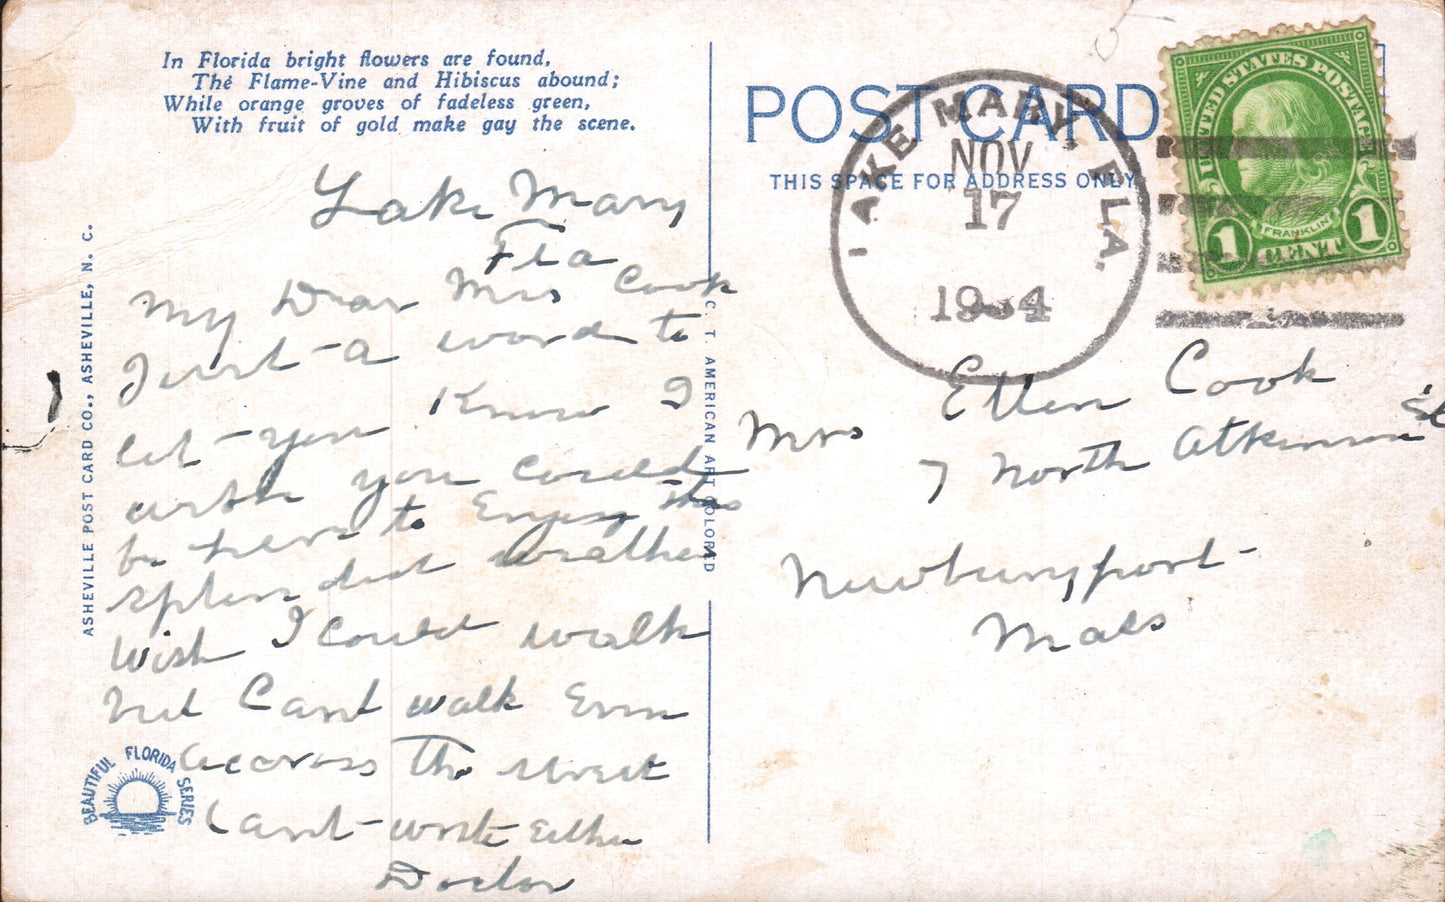 In Florida bright flowers are found,
The Flame-Vine and Hibiscus abound;
While orange groves of fadeless green,
With fruit of gold make gay the scene.
Lake Mary
Fla
My Dear Mrs Cook
Just a word to
let you Know I
wish you could
be here to Enjoy this
splendid weather
Wish I could walk
but Cant walk Even
accorass the street
Cant write Either
Doctor
ASHEVILLE POST CARD CO., ASHEVILLE, N. C.
BEAUTIFUL FLORIDA SERIES
C. T. AMERICAN ART COLORED
POST CARD
THIS SPACE FOR ADDRESS ONLY
LAKE MARY, FLA.
NOV
17
1934
UNITED STATES POSTAGE
FRANKLIN
1 CENT 1
Mrs Ellen Cook
7 North Atkinson St
Newburyport
Mass